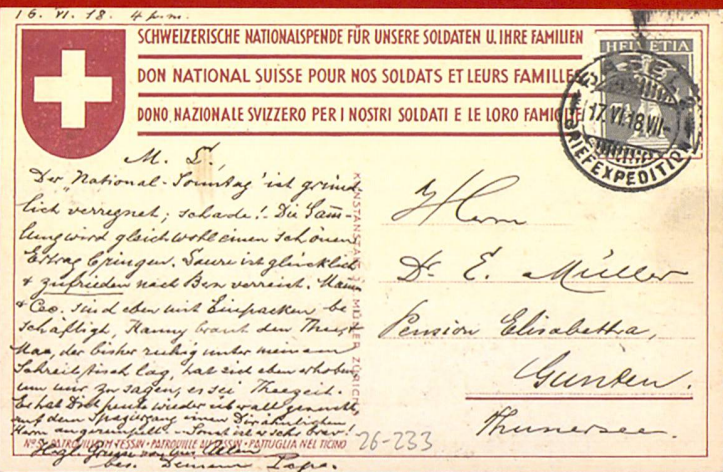 16. VI. 18. 4 p.m.
SCHWEIZERISCHE NATIONALSPENDE FÜR UNSERE SOLDATEN U. IHRE FAMILIEN
DON NATIONAL SUISSE POUR NOS SOLDATS ET LEURS FAMILLES
DONO NAZIONALE SVIZZERO PER I NOSTRI SOLDATI E LE LORO FAMIGLIE
HELVETIA
BASEL
17.VI.18.VII-
BRIEFEXPEDITION
M. L.,
Der "National-Sonntag" ist gründ-
lich verregnet; schade! Die Sam-
lung wird gleichwohl einen schönen
Ertrag bringen. ist glücklich
& zufrieden nach Bern verreist. Mama
& sind eben mit Einpacken be-
schäftigt, braut den Thee &
der bisher ruhig unter meinem
Schreibtisch lag, hat sich eben erhoben
um mir zu sagen, es sei Theezeit.
Er hat Dich heute wieder überall gesucht,
auf dem Spaziergang einen Dir ähnlichen
Herrn
Hzgl. Grüsse von uns Allen
bes. Deinem Papa.
KUNSTANSTALT J. C. MÜLLER ZÜRICH
Herrn
Dr. E. Müller
Pension Elisabetha,
Gunten.
Thunersee.
PATROUILLE IM TESSIN • PATROUILLE AU TESSIN • PATTUGLIA NEL TICINO
26-233